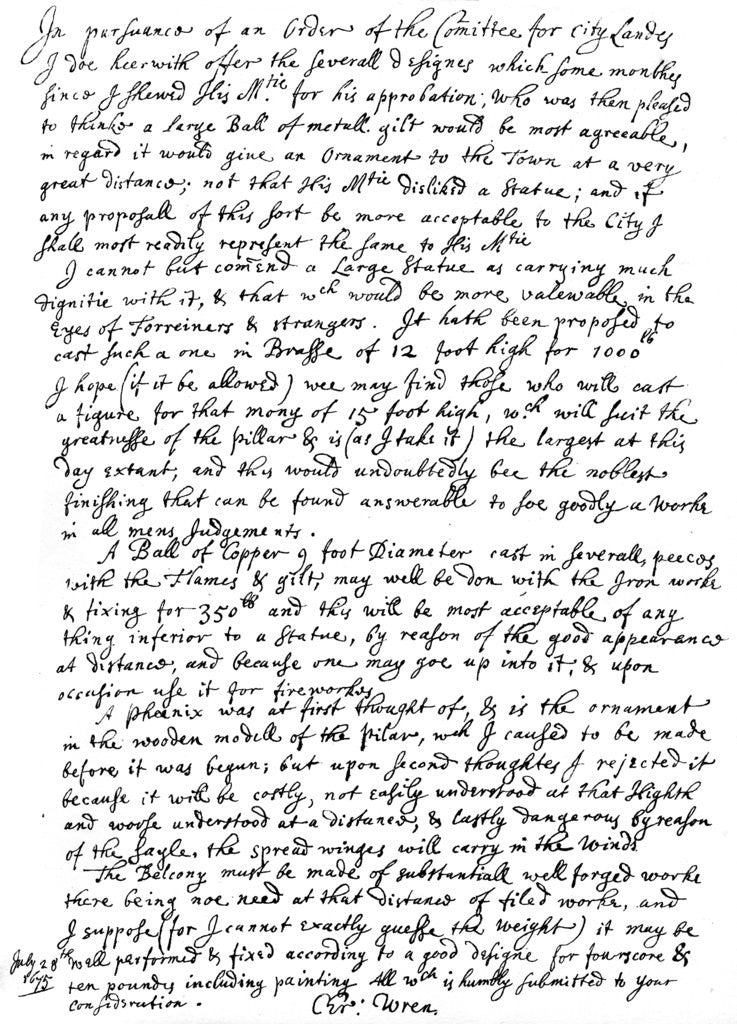 In pursuance of an Order of the Comittee for City Landes
I doe heerwith offer the severall designes which some monthes
since I shewed His M.tie for his approbation, who was then pleased
to thinke a large Ball of metall gilt would be most agreeable,
in regard it would give an Ornament to the Town at a very
great distance; not that His Mtie disliked a Statue; and if
any proposall of this sort be more acceptable to the City I
shall most readily represent the same to His Mtie
I cannot but comend a Large Statue as carrying much
dignitie with it, & that wch would be more valewable in the
Eyes of Forreiners & strangers. It hath been proposed to
cast such a one in Brasse of 12 foot high for 1000lb
I hope (if it be allowed) wee may find those who will cast
a figure for that mony of 15 foot high, w.ch will suit the
greatnesse of the pillar & is (as I take it) the largest at this
day extant; and this would undoubtedly bee the noblest
finishing that can be found answerable to soe goodly a worke
in all mens Judgements.
A Ball of Copper 9 foot Diameter cast in severall peeces
with the Flames & gilt, may well be don with the Iron worke
& fixing for 350lb and this will be most acceptable of any
thing inferior to a Statue, by reason of the good appearance
at distance, and because one may goe up into it; & upon
occasion use it for fireworkes
A phœnix was at first thought of, & is the ornament
in the wooden modell of the pilar, wch I caused to be made
before it was begun; but upon second thoughtes I rejected it
because it will be costly, not easily understood at that Highth
and worse understood at a distance, & lastly dangerous by reason
of the sayle, the spread winges will carry in the winde
The Belcony must be made of substantiall well forged worke
there being noe need at that distance of filed worke, and
I suppose (for I cannot exactly guesse the weight) it may be
well performed & fixed according to a good designe for fourscore &
ten poundes including painting All wch is humbly submitted to your
consideration.
July 28th
1675
Chr: Wren.